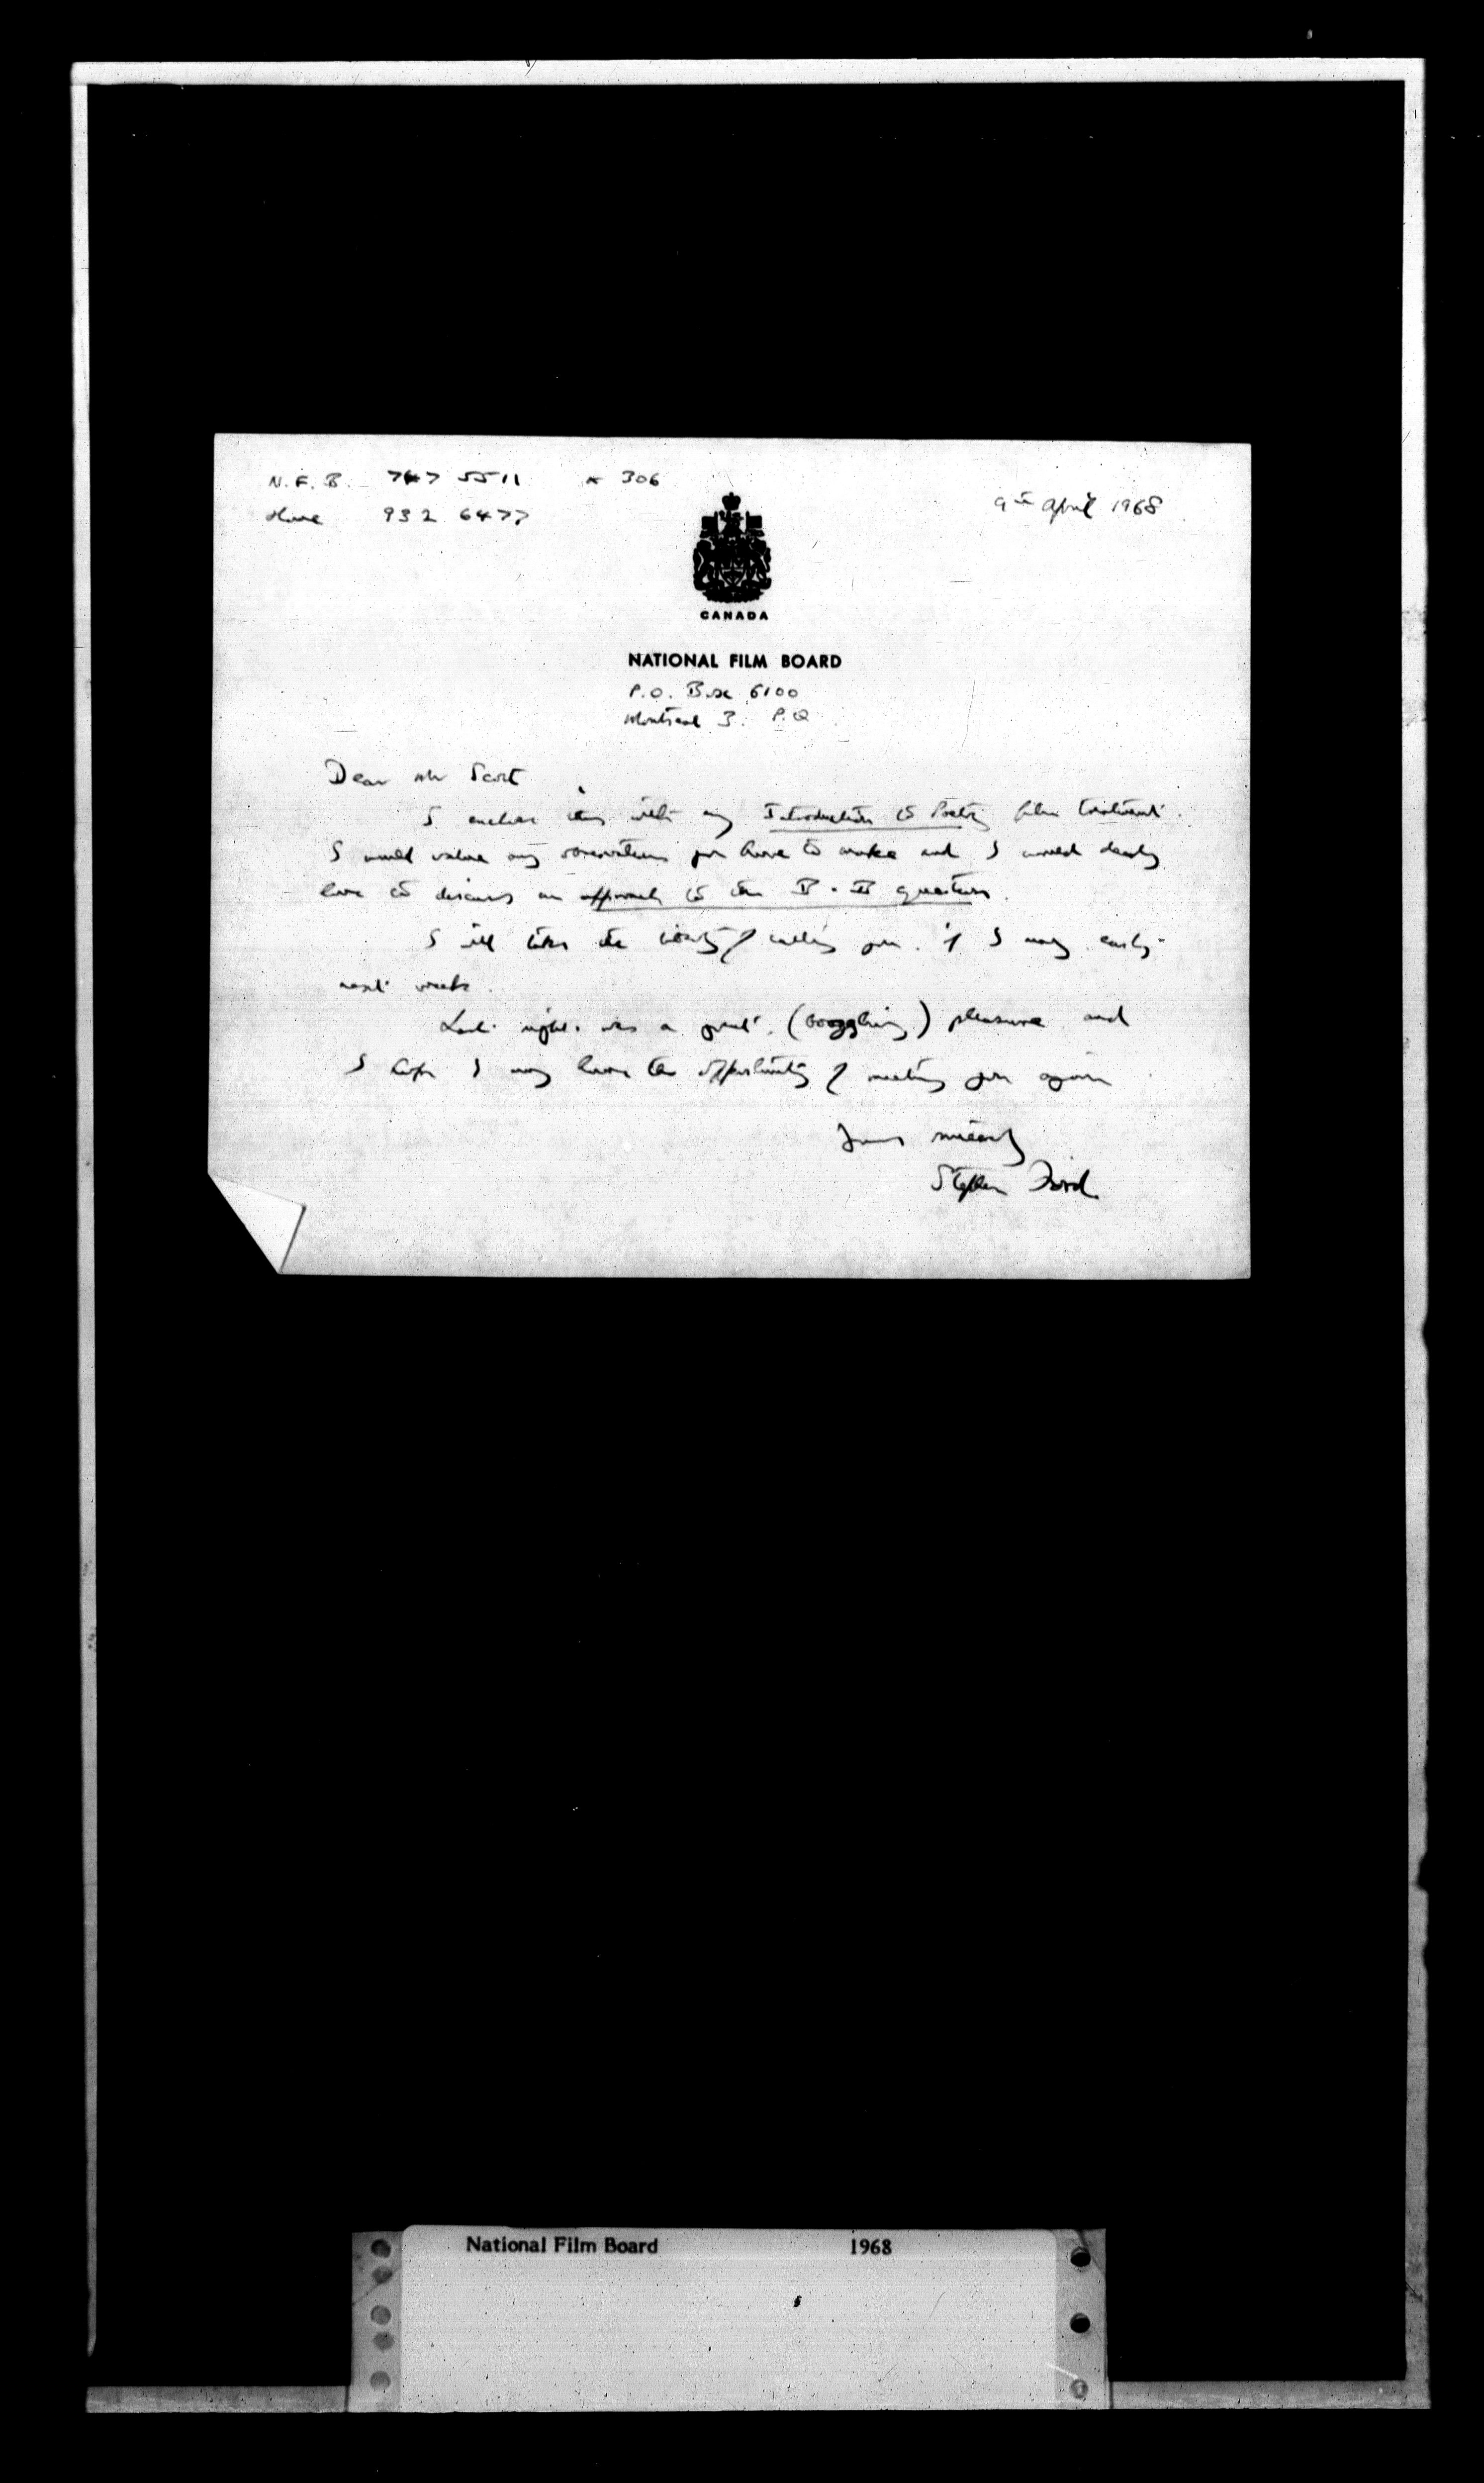 N.F.B. 747 5511 x 306
Home 932 6477
9th April 1968
CANADA
NATIONAL FILM BOARD
P.O. Box 6100
Montreal 3. P.Q
Dear Mr Scott
I enclose this with my Introduction to Poetry film treatment.
I would value any observations you have to make and I would dearly
love to discuss an approach to the B + B question.
I will take the liberty of calling you, if I may, early
next week.
Last night was a great, (boggling) pleasure and
I hope I may have the opportunity of meeting you again
Yours sincerely
Stephen
National Film Board 1968